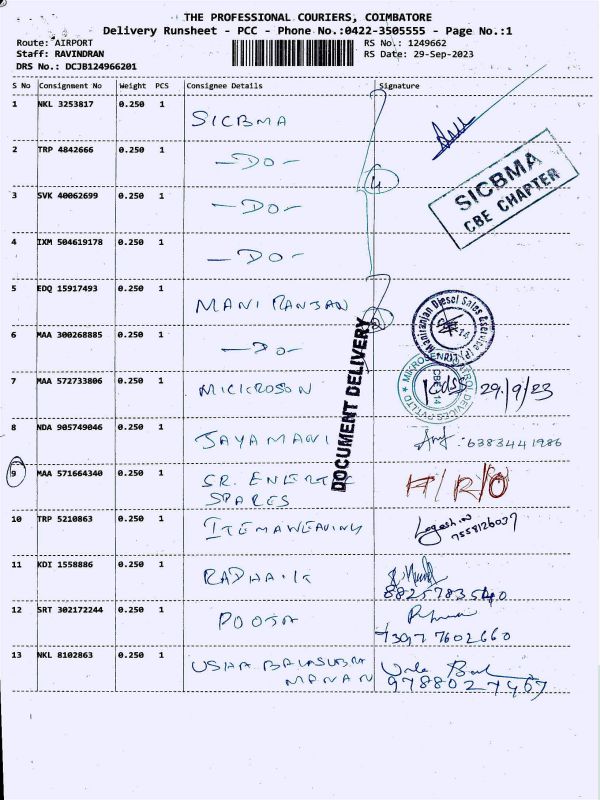 THE PROFESSIONAL COURIERS, COIMBATORE
Delivery Runsheet - PCC - Phone No.:0422-3505555 - Page No.:1
Route: AIRPORT RS No.: 1249662
Staff: RAVINDRAN RS Date: 29-Sep-2023
DRS No.: DCJB124966201
S No Consignment No Weight PCS Consignee Details Signature
1 NKL 3253817 0.250 1 SICBMA
2 TRP 4842666 0.250 1 -DO-
4
SICBMA
CBE CHAPTER
3 SVK 40062699 0.250 1 -DO-
4 IXM 504619178 0.250 1 -DO-
5 EDQ 15917493 0.250 1 MANI RANJAN
2
6 MAA 300268885 0.250 1 -DO-
DOCUMENT DELIVERY
7 MAA 572733806 0.250 1 MICKROSON 29/9/23
8 NDA 905749046 0.250 1 JAYAMANI 6383441986
9 MAA 571664340 0.250 1 SR. ENERTEC
SPARES
10 TRP 5210863 0.250 1 ITEMAWEAVING
7558126037
11 KDI 1558886 0.250 1 RADHA.K
8825783540
12 SRT 302172244 0.250 1 POOJA
7602660
13 NKL 8102863 0.250 1 USHA BALASUBRA
MANAN 9788027467